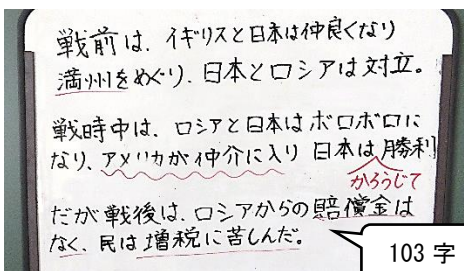 戦前は、イギリスと日本は仲良くなり
満州をめぐり、日本とロシアは対立。
戦時中は、ロシアと日本はボロボロに
なり、アメリカが仲介に入り 日本は勝利
かろうじて
だが戦後は、ロシアからの賠償金は
なく、民は増税に苦しんだ。
103 字